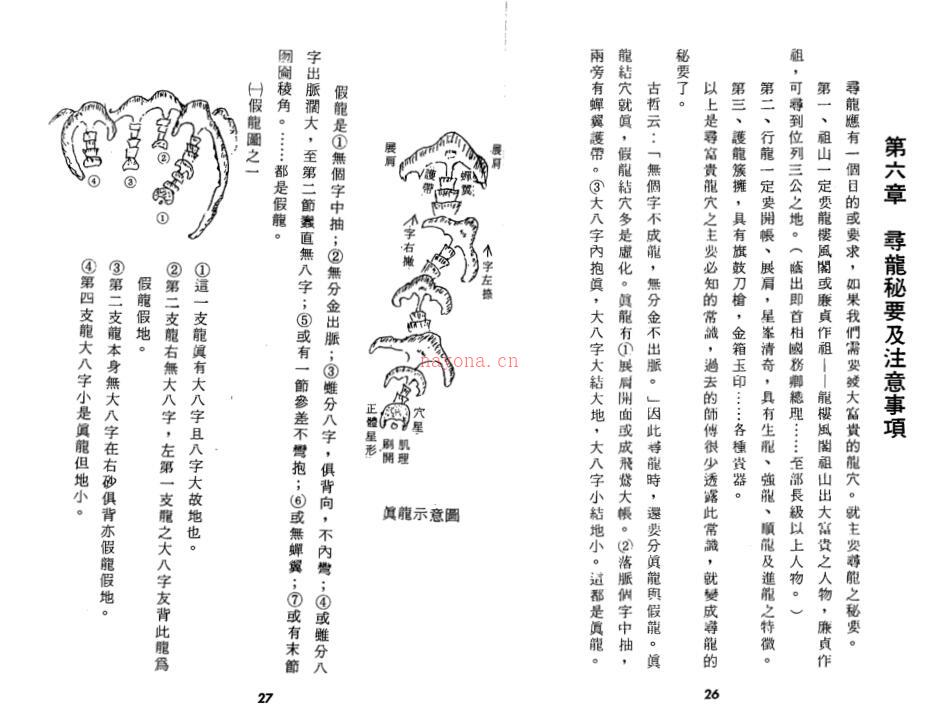 第六章　尋龍秘要及注意事項
尋龍應有一個目的或要求，如果我們需要發大富貴的龍穴。就主要尋龍之秘要。
第一、祖山一定要龍樓風閣或廉貞作祖——龍樓風閣祖山出大富貴之人物，廉貞作
祖，可尋到位列三公之地。（蔭出即首相國務卿總理……至部長級以上人物。）
第二、行龍一定要開帳、展肩，星峯清奇，具有生龍、強龍、順龍及進龍之特徵。
第三、護龍簇擁，具有旗鼓刀槍，金箱玉印……各種貴器。
以上是尋富貴龍穴之主要必知的常識，過去的師傅很少透露此常識，就變成尋龍的
秘要了。
古哲云：「無個字不成龍，無分金不出脈。」因此尋龍時，還要分眞龍與假龍。眞
龍結穴就眞，假龍結穴多是虛化。眞龍有①展肩開面或成飛鵞大帳。②落脈個字中抽，
兩旁有蟬翼護帶。③大八字內抱眞，大八字大結大地，大八字小結地小。這都是眞龍。
26
展肩
蟬翼
護帶
展肩
个字左捺
个字右撇
穴星
肌理
刷開
正體星形
眞龍示意圖
nayona.cn
假龍是①無個字中抽；②無分金出脈；③雖分八字，俱背向，不內彎；④或雖分八
字出脈濶大，至第二節蠢直無八字；⑤或有一節參差不彎抱；⑥或無蟬翼；⑦或有末節
囫圇稜角。……都是假龍。
㈠假龍圖之一
④
③
②
①
①這一支龍眞有大八字且八字大故地也。
②第二支龍右無大八字，左第一支龍之大八字友背此龍爲
假龍假地。
③第二支龍本身無大八字在右砂俱背亦假龍假地。
④第四支龍大八字小是眞龍但地小。
27